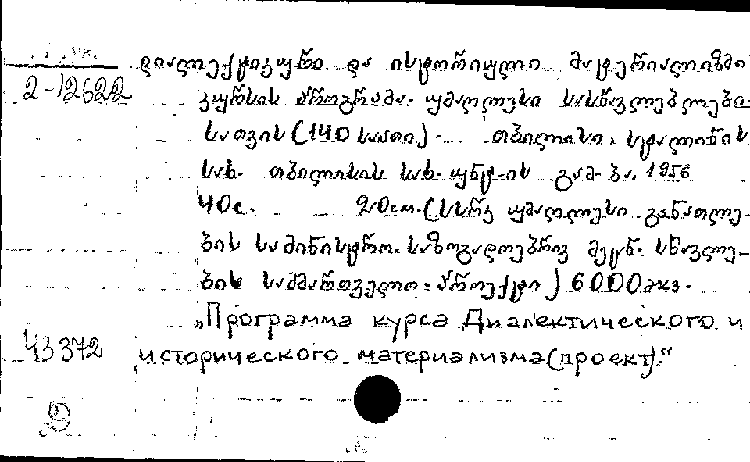 დიალექტიკური და ისტორიული მატერიალიზმი
2-12622
კურსის პროგრამა. უმაღლესი სასწავლებლები-
სათვის (140 საათი). თბილისი. სტალინის
სახ. თბილისის სახ. უნტ-ის გამ-ბა, 1956
40с. 20см. (სსრკ უმაღლესი განათლე-
ბის სამინისტრო. საზოგადოებრივ მეცნ. სწავლე-
ბის სამმართველო. პროექტი) 6000ეკზ.
„Программа курса Диалектического и
43372 исторического материализма (проект)."